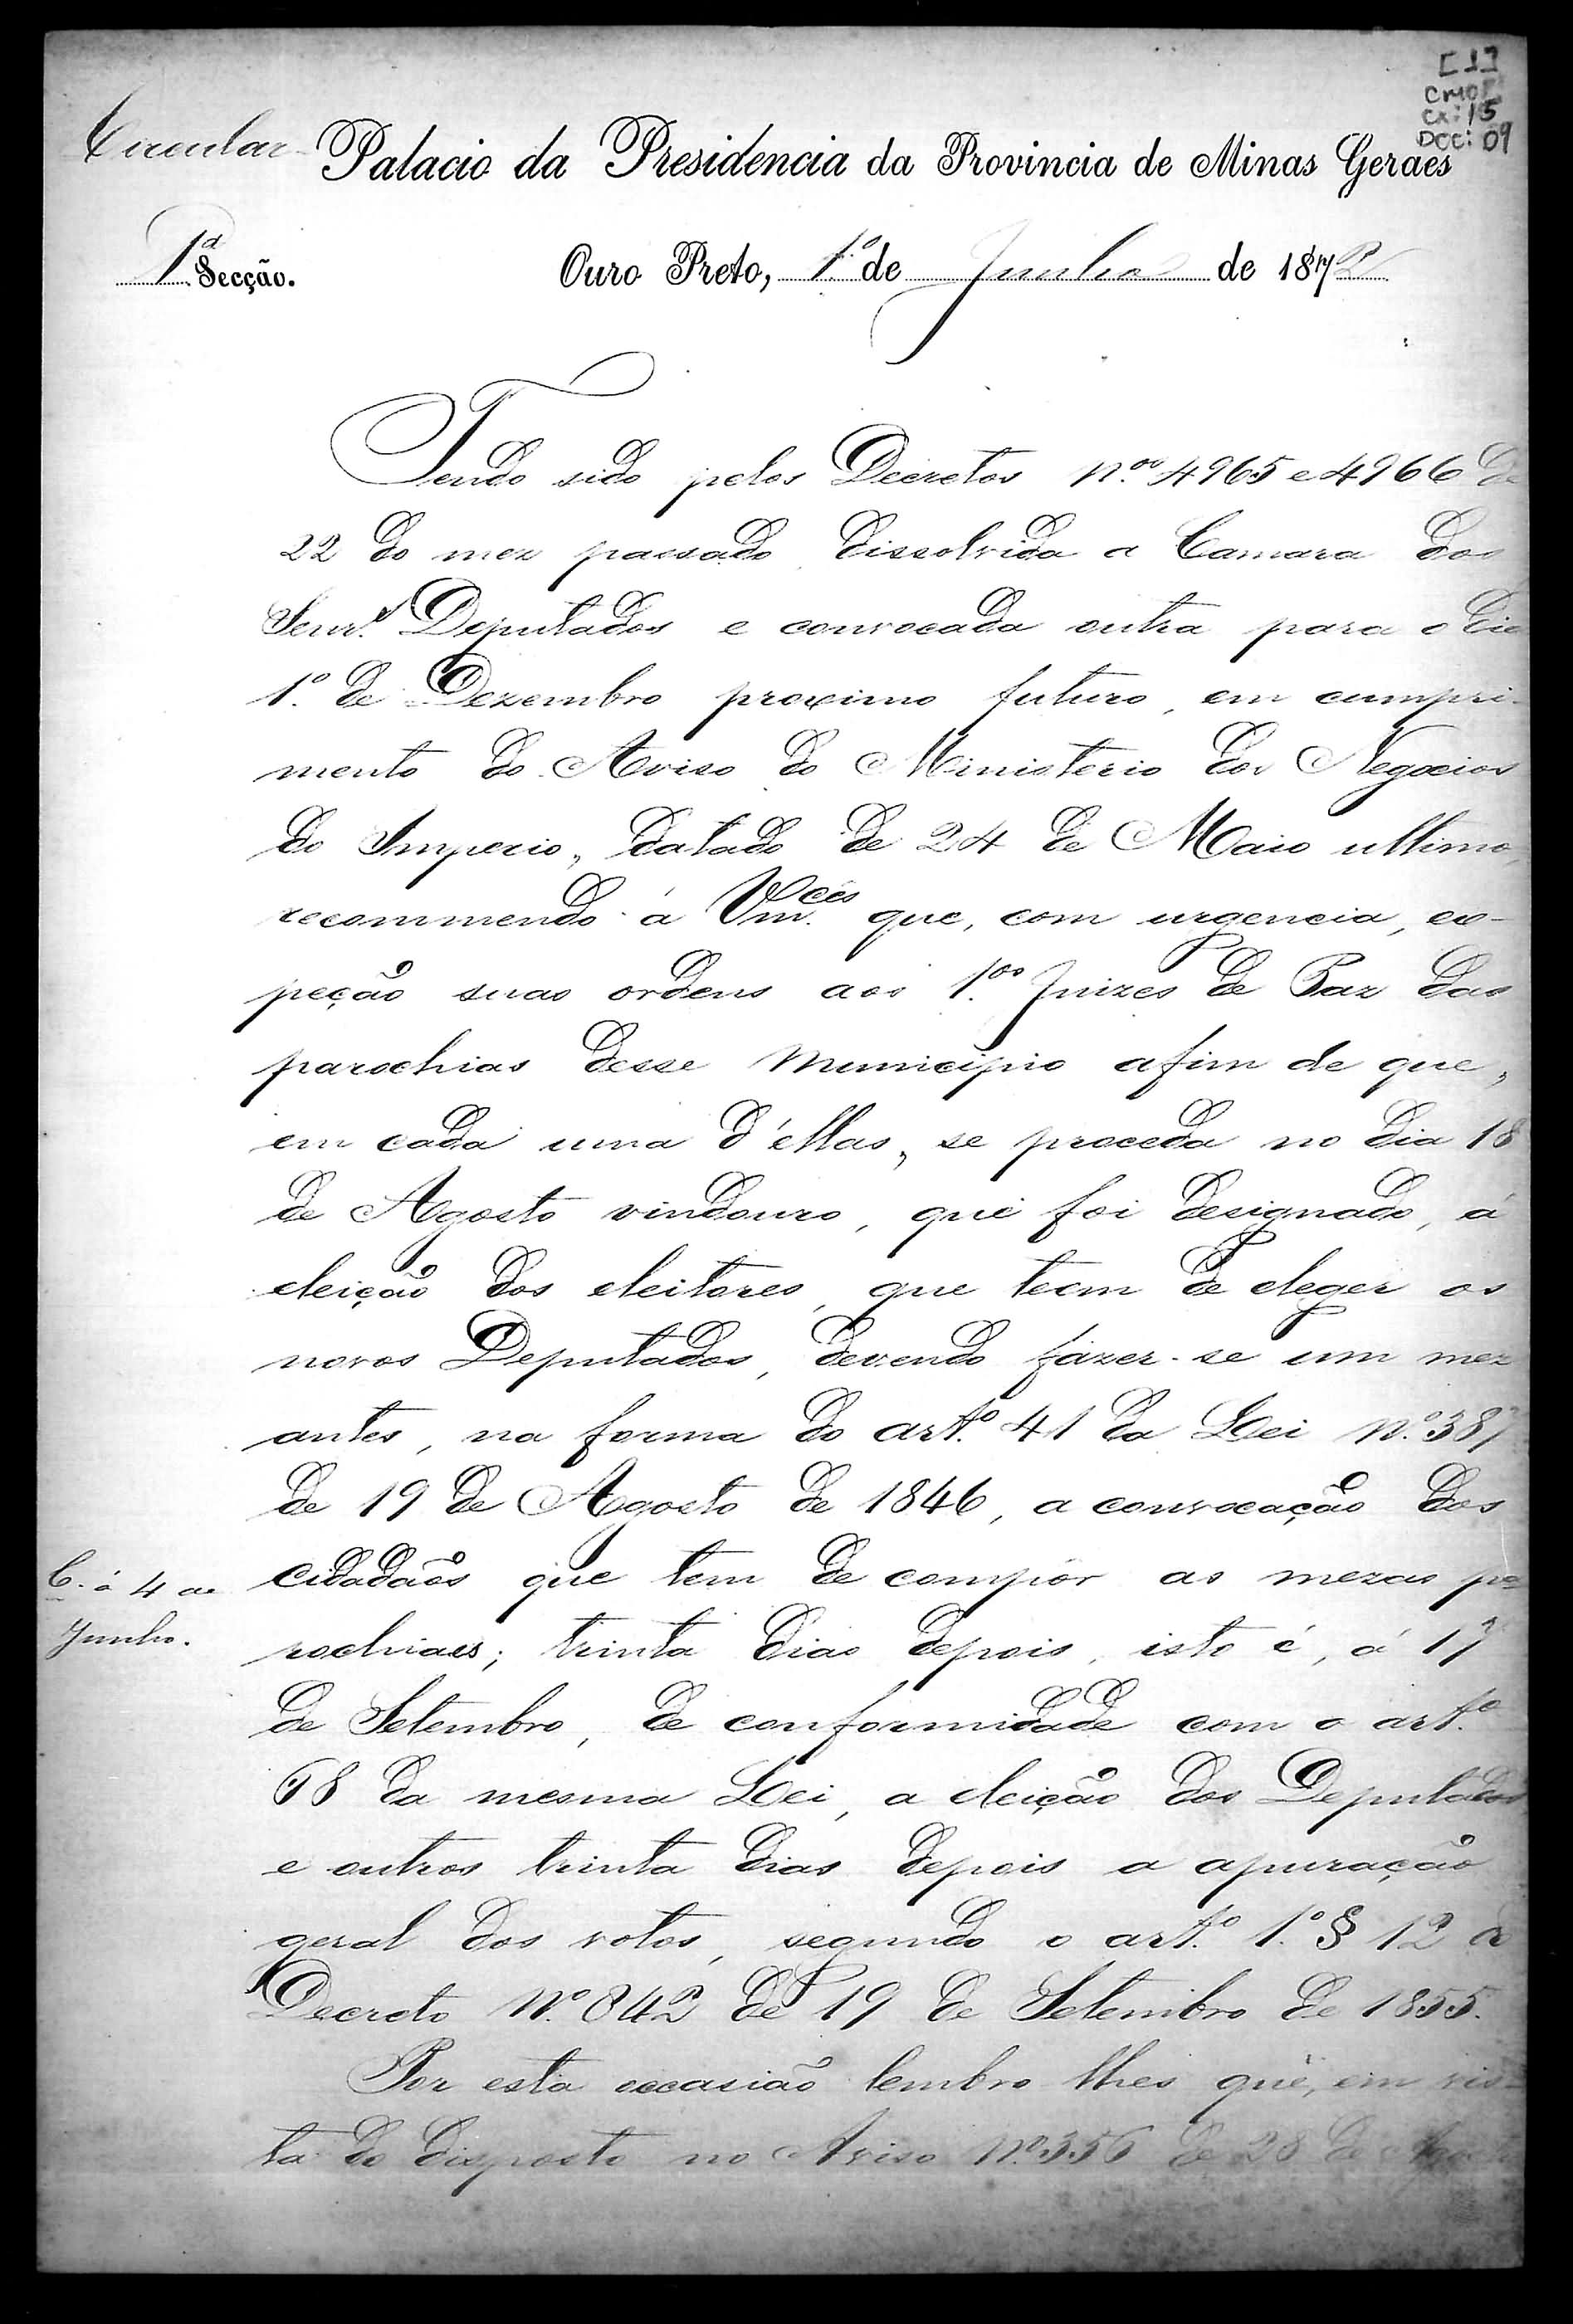 [1]
CMOP
cx: 15
DOC: 09
Circular
Palacio da Presidencia da Provincia de Minas Geraes
1ª Secção.
Ouro Preto, 1º de Junho de 1872
Tendo sido pelos Decretos Nºs 4965 e 4966 de
22 do mez passado dissolvida a Camara dos
Senrs. Deputados e convocada outra para o dia
1º de Dezembro proximo futuro, em cumpri-
mento do Aviso do Ministerio dos Negocios
do Imperio, datado de 24 de Maio ultimo,
recommendo á Vmcês. que, com urgencia, ex-
peção suas ordens aos 1ºs Juizes de Paz das
parochias desse Municipio afim de que,
em cada uma d'ellas, se proceda no dia 18
de Agosto vindouro, que foi designado, á
eleição dos eleitores, que teem de eleger os
novos Deputados, devendo fazer-se um mez
antes, na forma do artº 41 da Lei Nº 387
de 19 de Agosto de 1846, a convocação dos
cidadãos que tem de compôr as mezas pa
rochiaes; trinta dias depois, isto é, á 17
de Setembro, de conformidade com o artº
68 da mesma Lei, a eleição dos Deputados
e outros trinta dias depois a apuração
geral dos votos, segundo o artº 1º § 12 do
Decreto Nº 842 de 19 de Setembro de 1855.
Por esta occasião lembro lhes que, em vis-
ta do disposto no Aviso Nº 356 de 28 de
C. á 4 de
Junho.